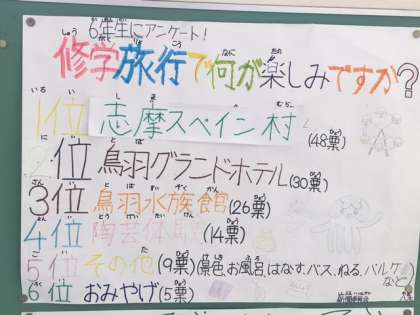 6年生にアンケート!
修学旅行で何が楽しみですか?
1位 志摩スペイン村 (48票)
2位 鳥羽グランドホテル(30票)
3位 鳥羽水族館(26票)
4位 陶芸体験(14票)
5位 その他(9票)(景色、お風呂、はなす、バス、ねる、バルケ など)
6位 おみやげ(5票)